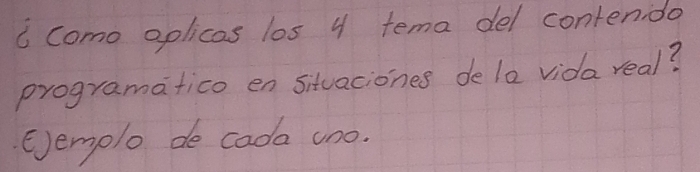 ¿ Como aplicas los 4 tema del contenido
programático en situaciónes de la vida real?
Ejemplo de cada uno.